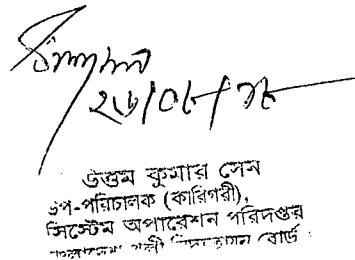 ২৬/০৮/১৮
উত্তম কুমার সেন
উপ-পরিচালক (কারিগরী),
সিস্টেম অপারেশন পরিদপ্তর
পল্লী বোর্ড